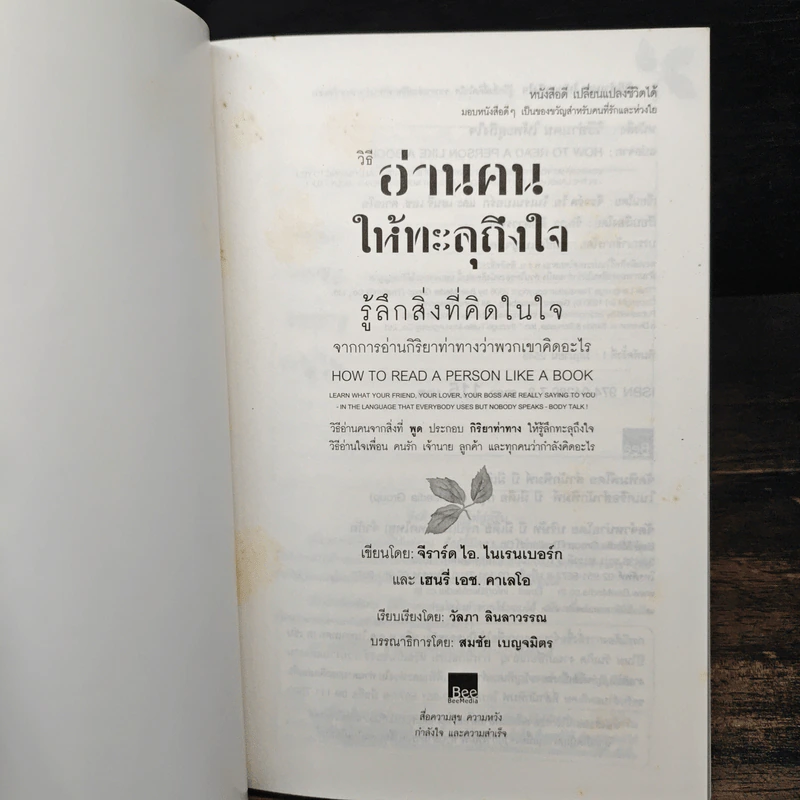 หนังสือดี เปลี่ยนแปลงชีวิตได้
มอบหนังสือดีๆ เป็นของขวัญสำหรับคนที่รักและห่วงใย
วิธี
อ่านคน
ให้ทะลุถึงใจ
รู้ลึกสิ่งที่คิดในใจ
จากการอ่านกิริยาท่าทางว่าพวกเขาคิดอะไร
HOW TO READ A PERSON LIKE A BOOK
LEARN WHAT YOUR FRIEND, YOUR LOVER, YOUR BOSS ARE REALLY SAYING TO YOU
- IN THE LANGUAGE THAT EVERYBODY USES BUT NOBODY SPEAKS - BODY TALK !
วิธีอ่านคนจากสิ่งที่ พูด ประกอบ กิริยาท่าทาง ให้รู้ลึกทะลุถึงใจ
วิธีอ่านใจเพื่อน คนรัก เจ้านาย ลูกค้า และทุกคนว่ากำลังคิดอะไร
เขียนโดย: จีราร์ด ไอ. ไนเรนเบอร์ก
และ เฮนรี่ เอช. คาเลโอ
เรียบเรียงโดย: วัลภา ลินลาวรรณ
บรรณาธิการโดย: สมชัย เบญจมิตร
Bee
BeeMedia
สื่อความสุข ความหวัง
กำลังใจ และความสำเร็จ